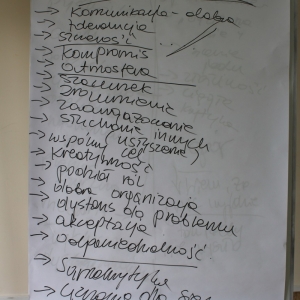 → Komunikacja - dobra
→ tolerancja
→ szczerość
→ kompromis
→ atmosfera
→ szacunek
→ zrozumienie
→ zaangażowanie
→ słuchanie innych
→ wspólny cel
→ kreatywność
→ podział ról
→ dobra organizacja
→ dystans do problemu
→ akceptacja
→ odpowiedzialność
→
→ uznania dla